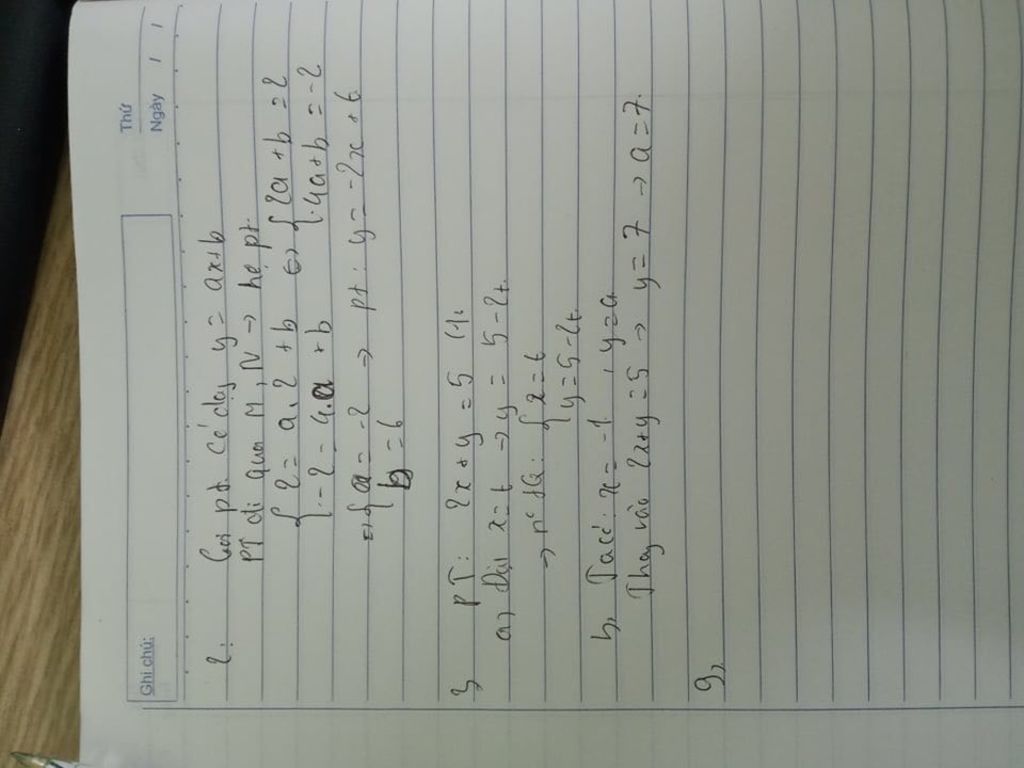 Thứ
Ngày / /
Ghi chú:
2. Gọi pt có dạng y = ax+b
PT đi qua M, N → hệ pt.
{ 2 = a.2 + b ⇔ { 2a + b = 2
{ -2 = 4.a + b { 4a + b = -2
⇒ { a = -2 → pt: y = -2x + 6
{ b = 6
3, PT: 2x + y = 5 (1).
a, Đặt x = t → y = 5 - 2t.
→ n° TQ: { x = t
{ y = 5 - 2t.
b, Ta có: x = -1, y = a.
Thay vào 2x+y = 5 → y = 7 → a = 7.
9,